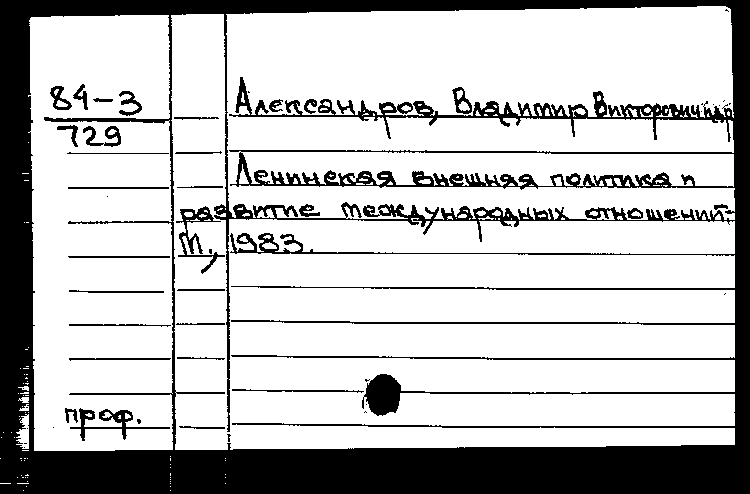 84-3
729
Александров, Владимир Викторович и др
Ленинская внешняя политика и
развитие международных отношений.-
М., 1983.
проф.